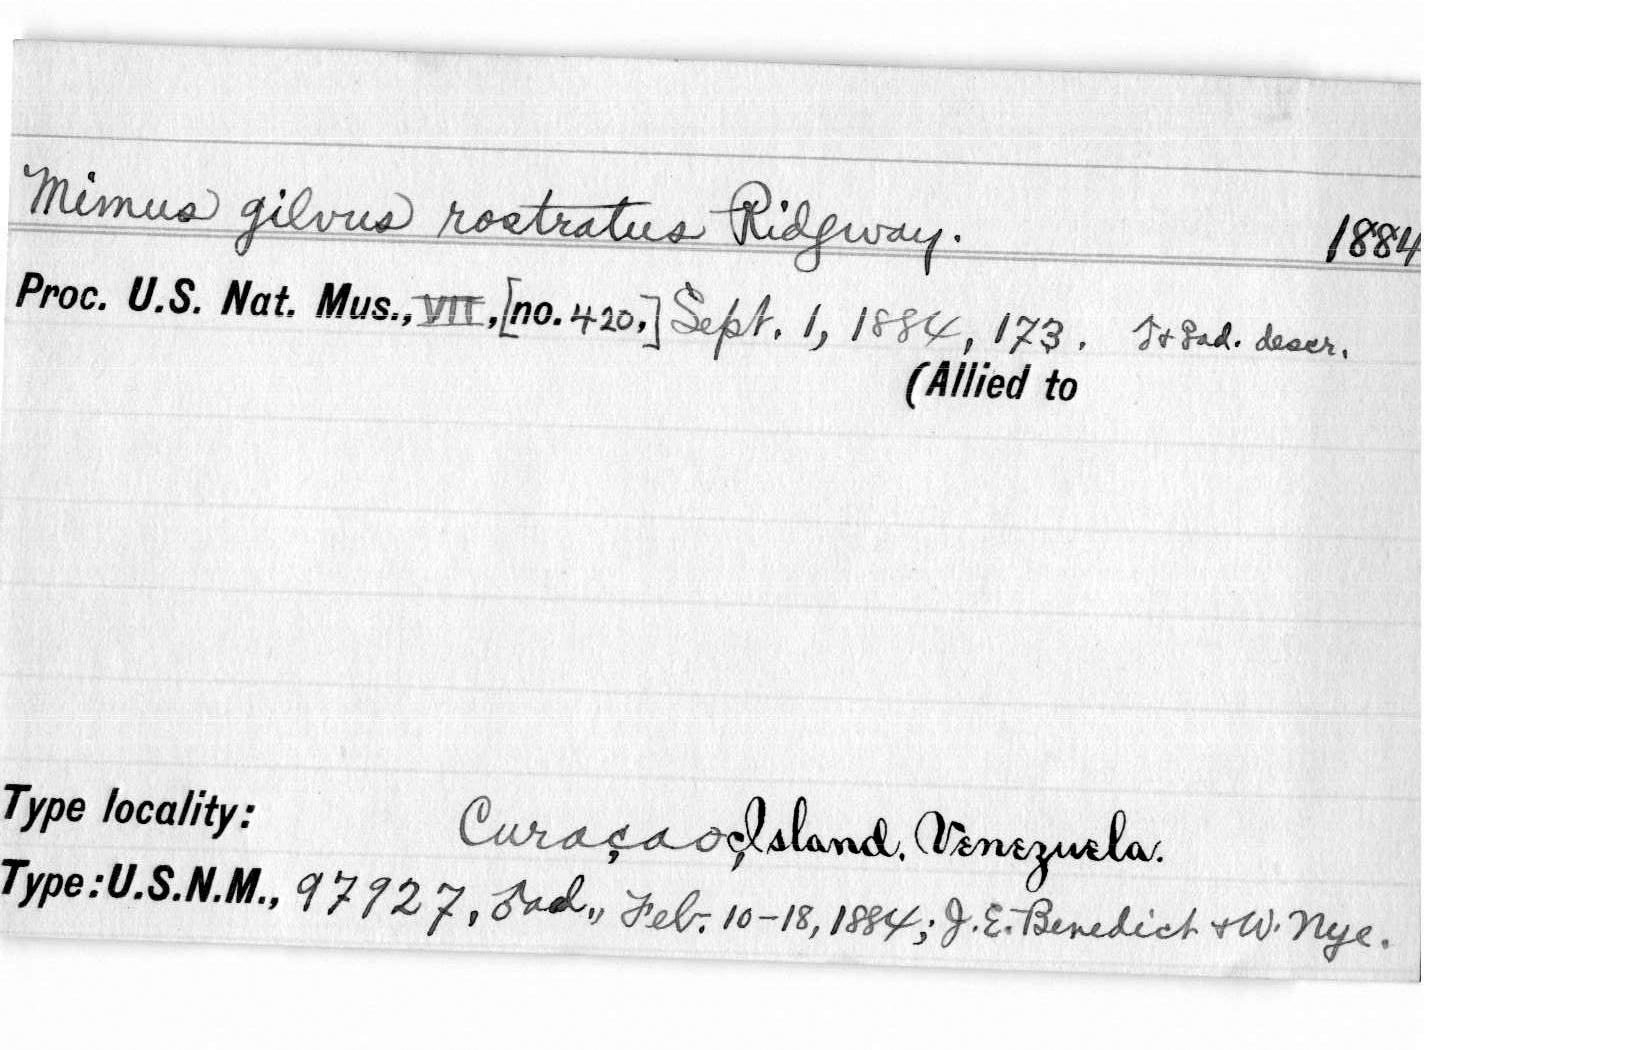 Mimus gilvus rostratus Ridgway. 1884
Proc. U.S. Nat. Mus., VII, [no. 420,] Sept. 1, 1884, 173. ad. descr.
(Allied to
Type locality: Curaçao Island, Venezuela.
Type: U.S.N.M., 97927, ad., Feb. 10-18, 1884; J.E. Benedict & W. Nye.